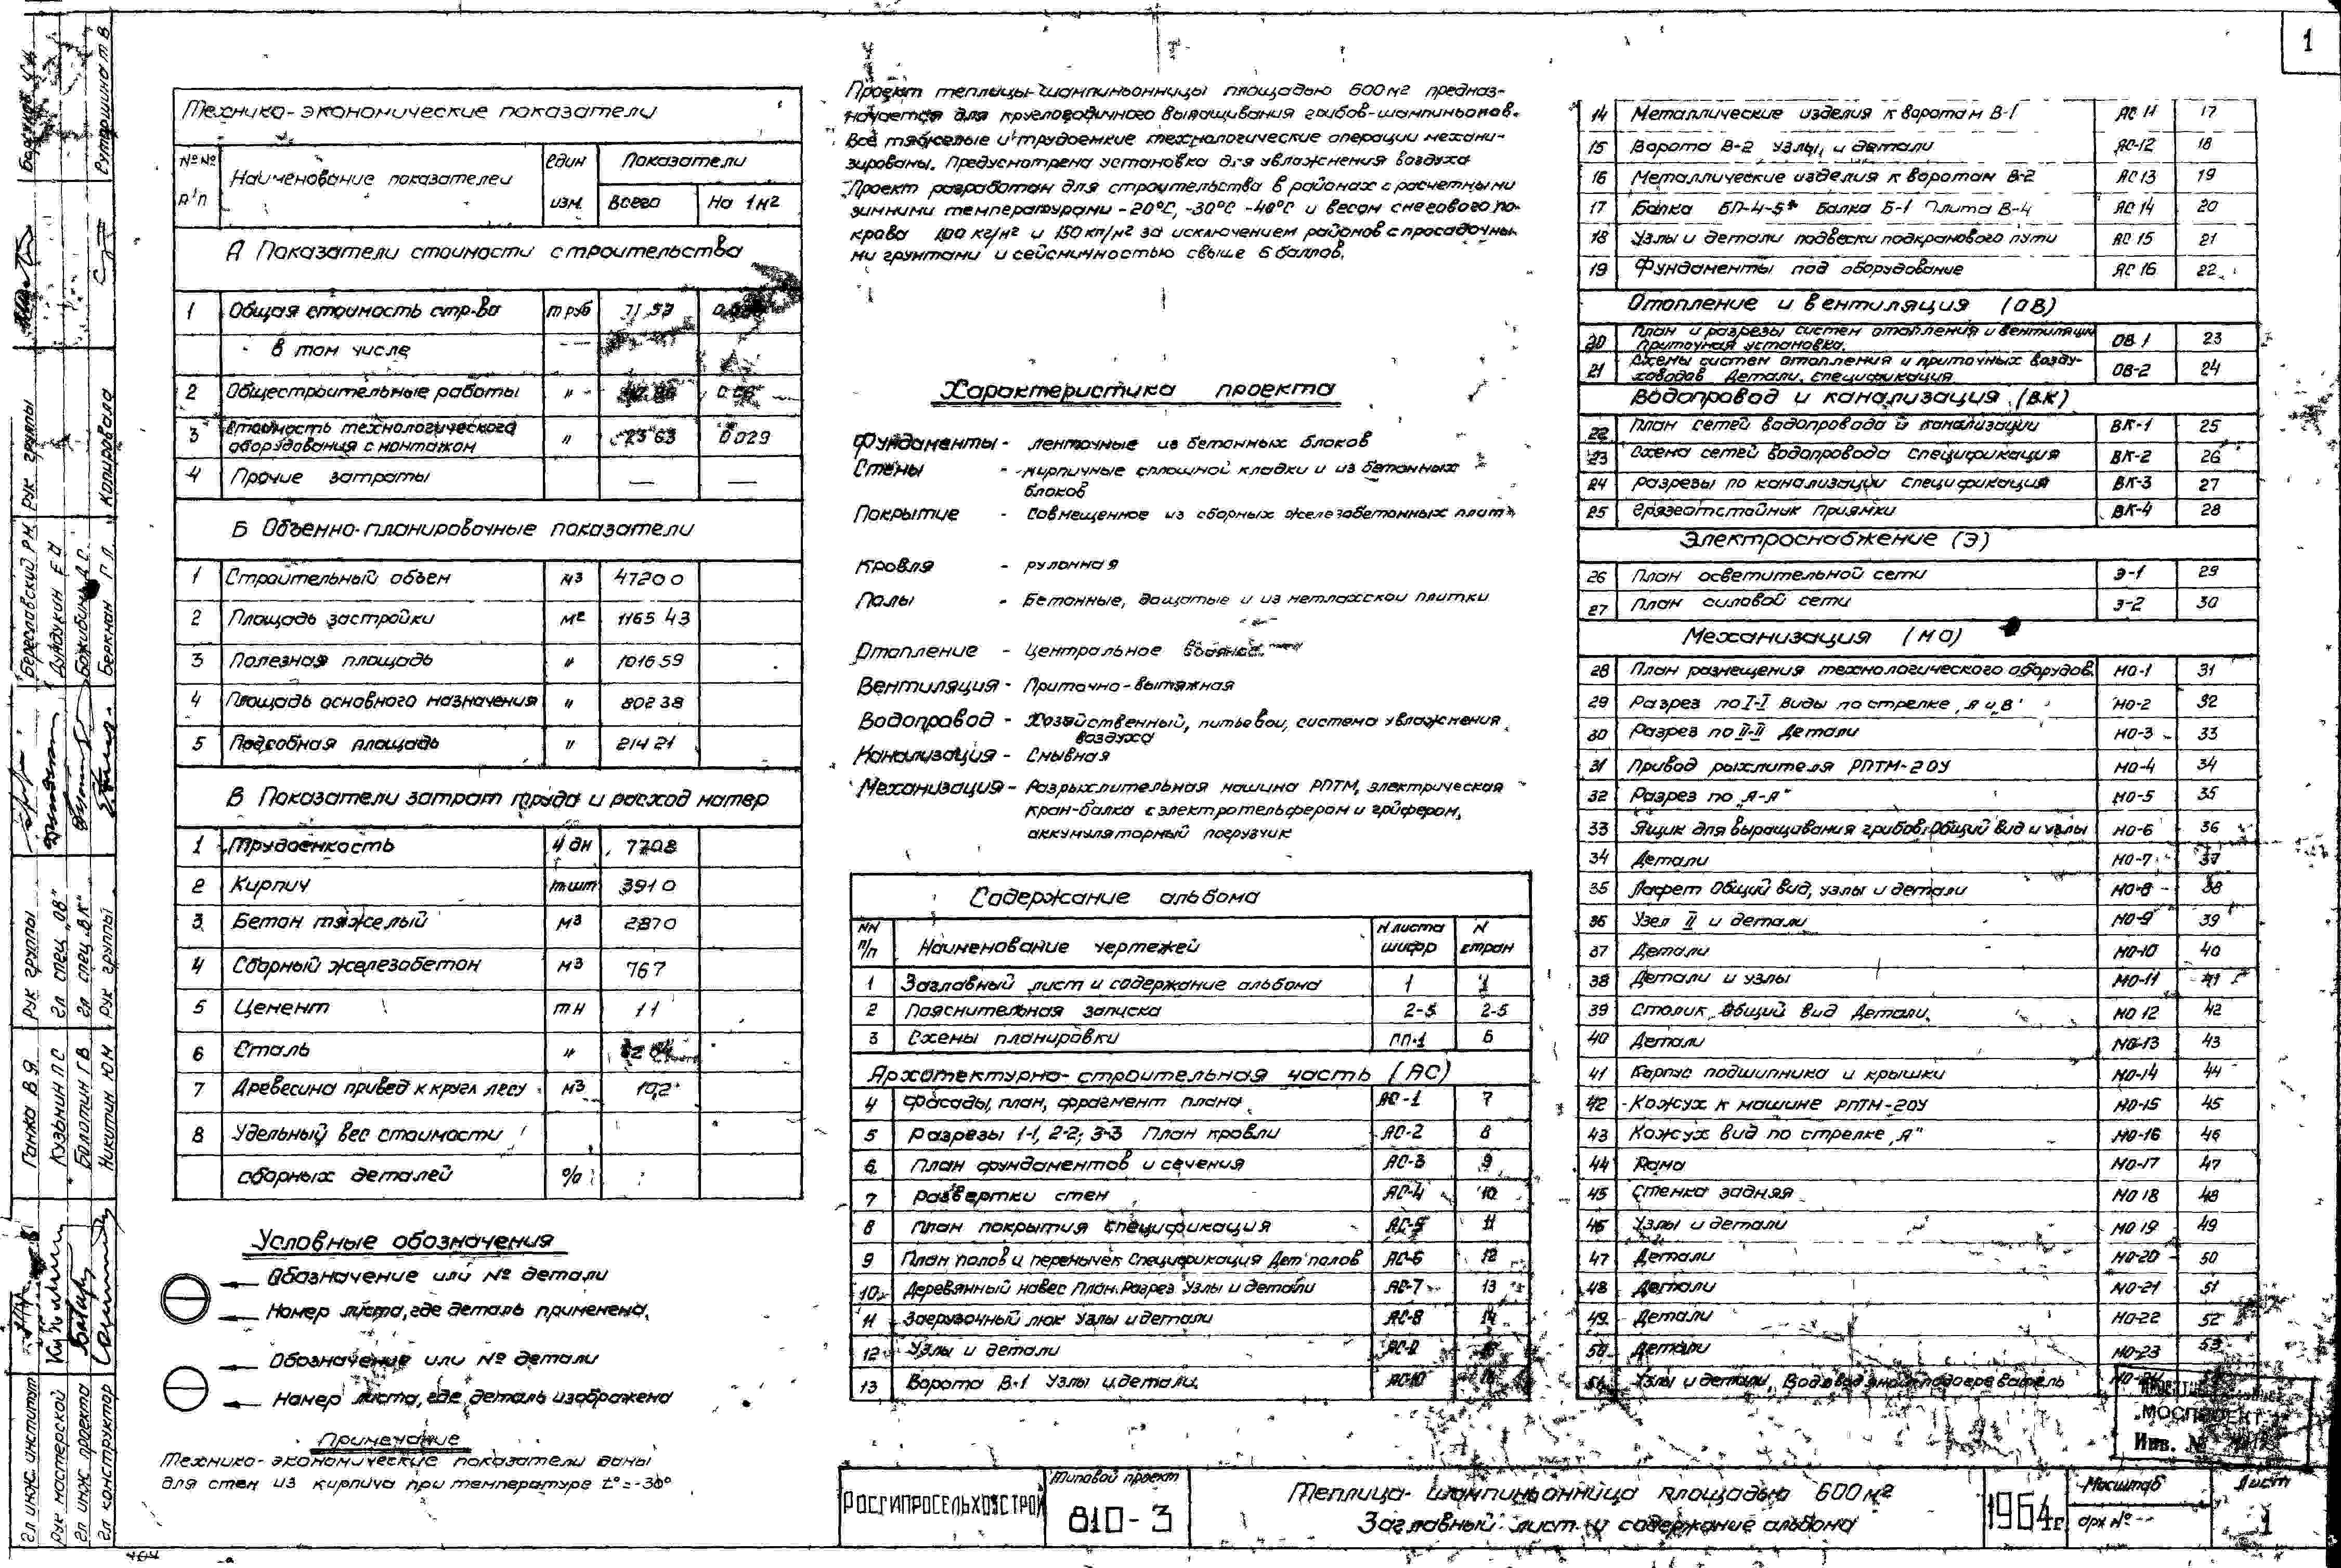 1
Технико-экономические показатели
№№ п/п
Наименование показателей
един изм.
Показатели
Всего
На 1м2
А Показатели стоимости строительства
1 Общая стоимость стр-ва т руб 71 53
в том числе
2 Общестроительные работы "
3 Стоимость технологического оборудования с монтажом " 23 63 0 029
4 Прочие затраты — —
Б Объемно-планировочные показатели
1 Строительный объем м3 4720 0
2 Площадь застройки м2 1165 43
3 Полезная площадь " 1016 59
4 Площадь основного назначения " 802 38
5 Подсобная площадь " 214 21
В Показатели затрат труда и расход матер
1 Трудоемкость ч дн 7708
2 Кирпич т шт 391 0
3 Бетон тяжелый м3 287 0
4 Сборный железобетон м3 767
5 Цемент тн 11
6 Сталь "
7 Древесина привед к кругл лесу м3 19,2
8 Удельный вес стоимости
сборных деталей %
Условные обозначения
Обозначение или № детали
Номер листа, где деталь применена.
Обозначение или № детали
Номер листа, где деталь изображена
Примечание
Технико-экономические показатели даны
для стен из кирпича при температуре t°=-30°
Проект теплицы-шампиньонницы площадью 600м2 предназ-
начается для круглогодичного выращивания грибов-шампиньонов.
Все тяжелые и трудоемкие технологические операции механи-
зированы. Предусмотрена установка для увлажнения воздуха
Проект разработан для строительства в районах с расчетными
зимними температурами -20°С, -30°С -40°С и весом снегового по-
крова 100 кг/м2 и 150 кг/м2 за исключением районов с просадочны-
ми грунтами и сейсмичностью свыше 6 баллов.
Характеристика проекта
Фундаменты - ленточные из бетонных блоков
Стены - кирпичные сплошной кладки и из бетонных
блоков
Покрытие - Совмещенное из сборных железобетонных плит
Кровля - рулонная
Полы - Бетонные, дощатые и из метлахской плитки
Отопление - Центральное водяное
Вентиляция - Приточно-вытяжная
Водопровод - Хозяйственный, питьевой, система увлажнения
воздуха
Канализация - Смывная
Механизация - Разрыхлительная машина РПТМ, электрическая
кран-балка с электротельфером и грейфером,
аккумуляторный погрузчик
Содержание альбома
NN п/п Наименование чертежей N листа шифр N стран
1 Заглавный лист и содержание альбома 1 1
2 Пояснительная записка 2-5 2-5
3 Схемы планировки ПП-1 6
Архитектурно-строительная часть (АС)
4 Фасады, план, фрагмент плана АС-1 7
5 Разрезы 1-1, 2-2; 3-3 План кровли АС-2 8
6 План фундаментов и сечения АС-3 9
7 Развертки стен АС-4 10
8 План покрытия спецификация АС-5 11
9 План полов и перемычек Спецификация Дет полов АС-6 12
10 Деревянный навес План. Разрез Узлы и детали АС-7 13
11 Загрузочный люк Узлы и детали АС-8 14
12 Узлы и детали АС-9
13 Ворота В-1 Узлы и детали. АС-10
14 Металлические изделия к воротам В-1 АС 11 17
15 Ворота В-2 Узлы и детали АС-12 18
16 Металлические изделия к воротам В-2 АС 13 19
17 Балка БП-4-5* Балка Б-1 Плита В-4 АС 14 20
18 Узлы и детали подвески подкранового пути АС 15 21
19 Фундаменты под оборудование АС 16 22
Отопление и вентиляция (ОВ)
20 План и разрезы систем отопления и вентиляции
Приточная установка. ОВ 1 23
21 Схемы систем отопления и приточных возду-
ховодов Детали, спецификация ОВ-2 24
Водопровод и канализация (ВК)
22 План сетей водопровода и канализации ВК-1 25
23 Схема сетей водопровода Спецификация ВК-2 26
24 Разрезы по канализации Спецификация ВК-3 27
25 Грязеотстойник Приямки ВК-4 28
Электроснабжение (Э)
26 План осветительной сети Э-1 29
27 План силовой сети Э-2 30
Механизация (МО)
28 План размещения технологического оборудов. МО-1 31
29 Разрез по I-I Виды по стрелке „А и „В" МО-2 32
30 Разрез по II-II Детали МО-3 33
31 Привод рыхлителя РПТМ-20У МО-4 34
32 Разрез по „А-А" МО-5 35
33 Ящик для выращивания грибов. Общий вид и узлы МО-6 36
34 Детали МО-7 37
35 Лафет Общий вид, узлы и детали МО-8 38
36 Узел II и детали МО-9 39
37 Детали МО-10 40
38 Детали и узлы МО-11 41
39 Столик. Общий вид Детали. МО 12 42
40 Детали МО-13 43
41 Корпус подшипника и крышки МО-14 44
42 Кожух к машине РПТМ-20У МО-15 45
43 Кожух вид по стрелке „А" МО-16 46
44 Рама МО-17 47
45 Стенка задняя МО 18 48
46 Узлы и детали МО 19 49
47 Детали МО-20 50
48 Детали МО-21 51
49 Детали МО-22 52
50 Детали МО-23 53
51 Узлы и детали, Водоводяной подогреватель
МОСПРОЕКТ
Инв. №
РОСГИПРОСЕЛЬХОЗСТРОЙ
Типовой проект
810-3
Теплица-шампиньонница площадью 600м2
Заглавный лист и содержание альбома
1964г
Масштаб
арх №
Лист
1
Гл инж. институт
Рук мастерской
Гл инж. проекта
Гл конструктор
Ганжа В Я
Кузьмин П С
Болотин Г В
Никитин Ю М
Рук группы
Гл спец „ОВ"
Гл спец „ВК"
Рук группы
Береславский Р М
Дундукин Е Ф
Божибин Д С
Беркман Г Л
Рук группы
Копировала